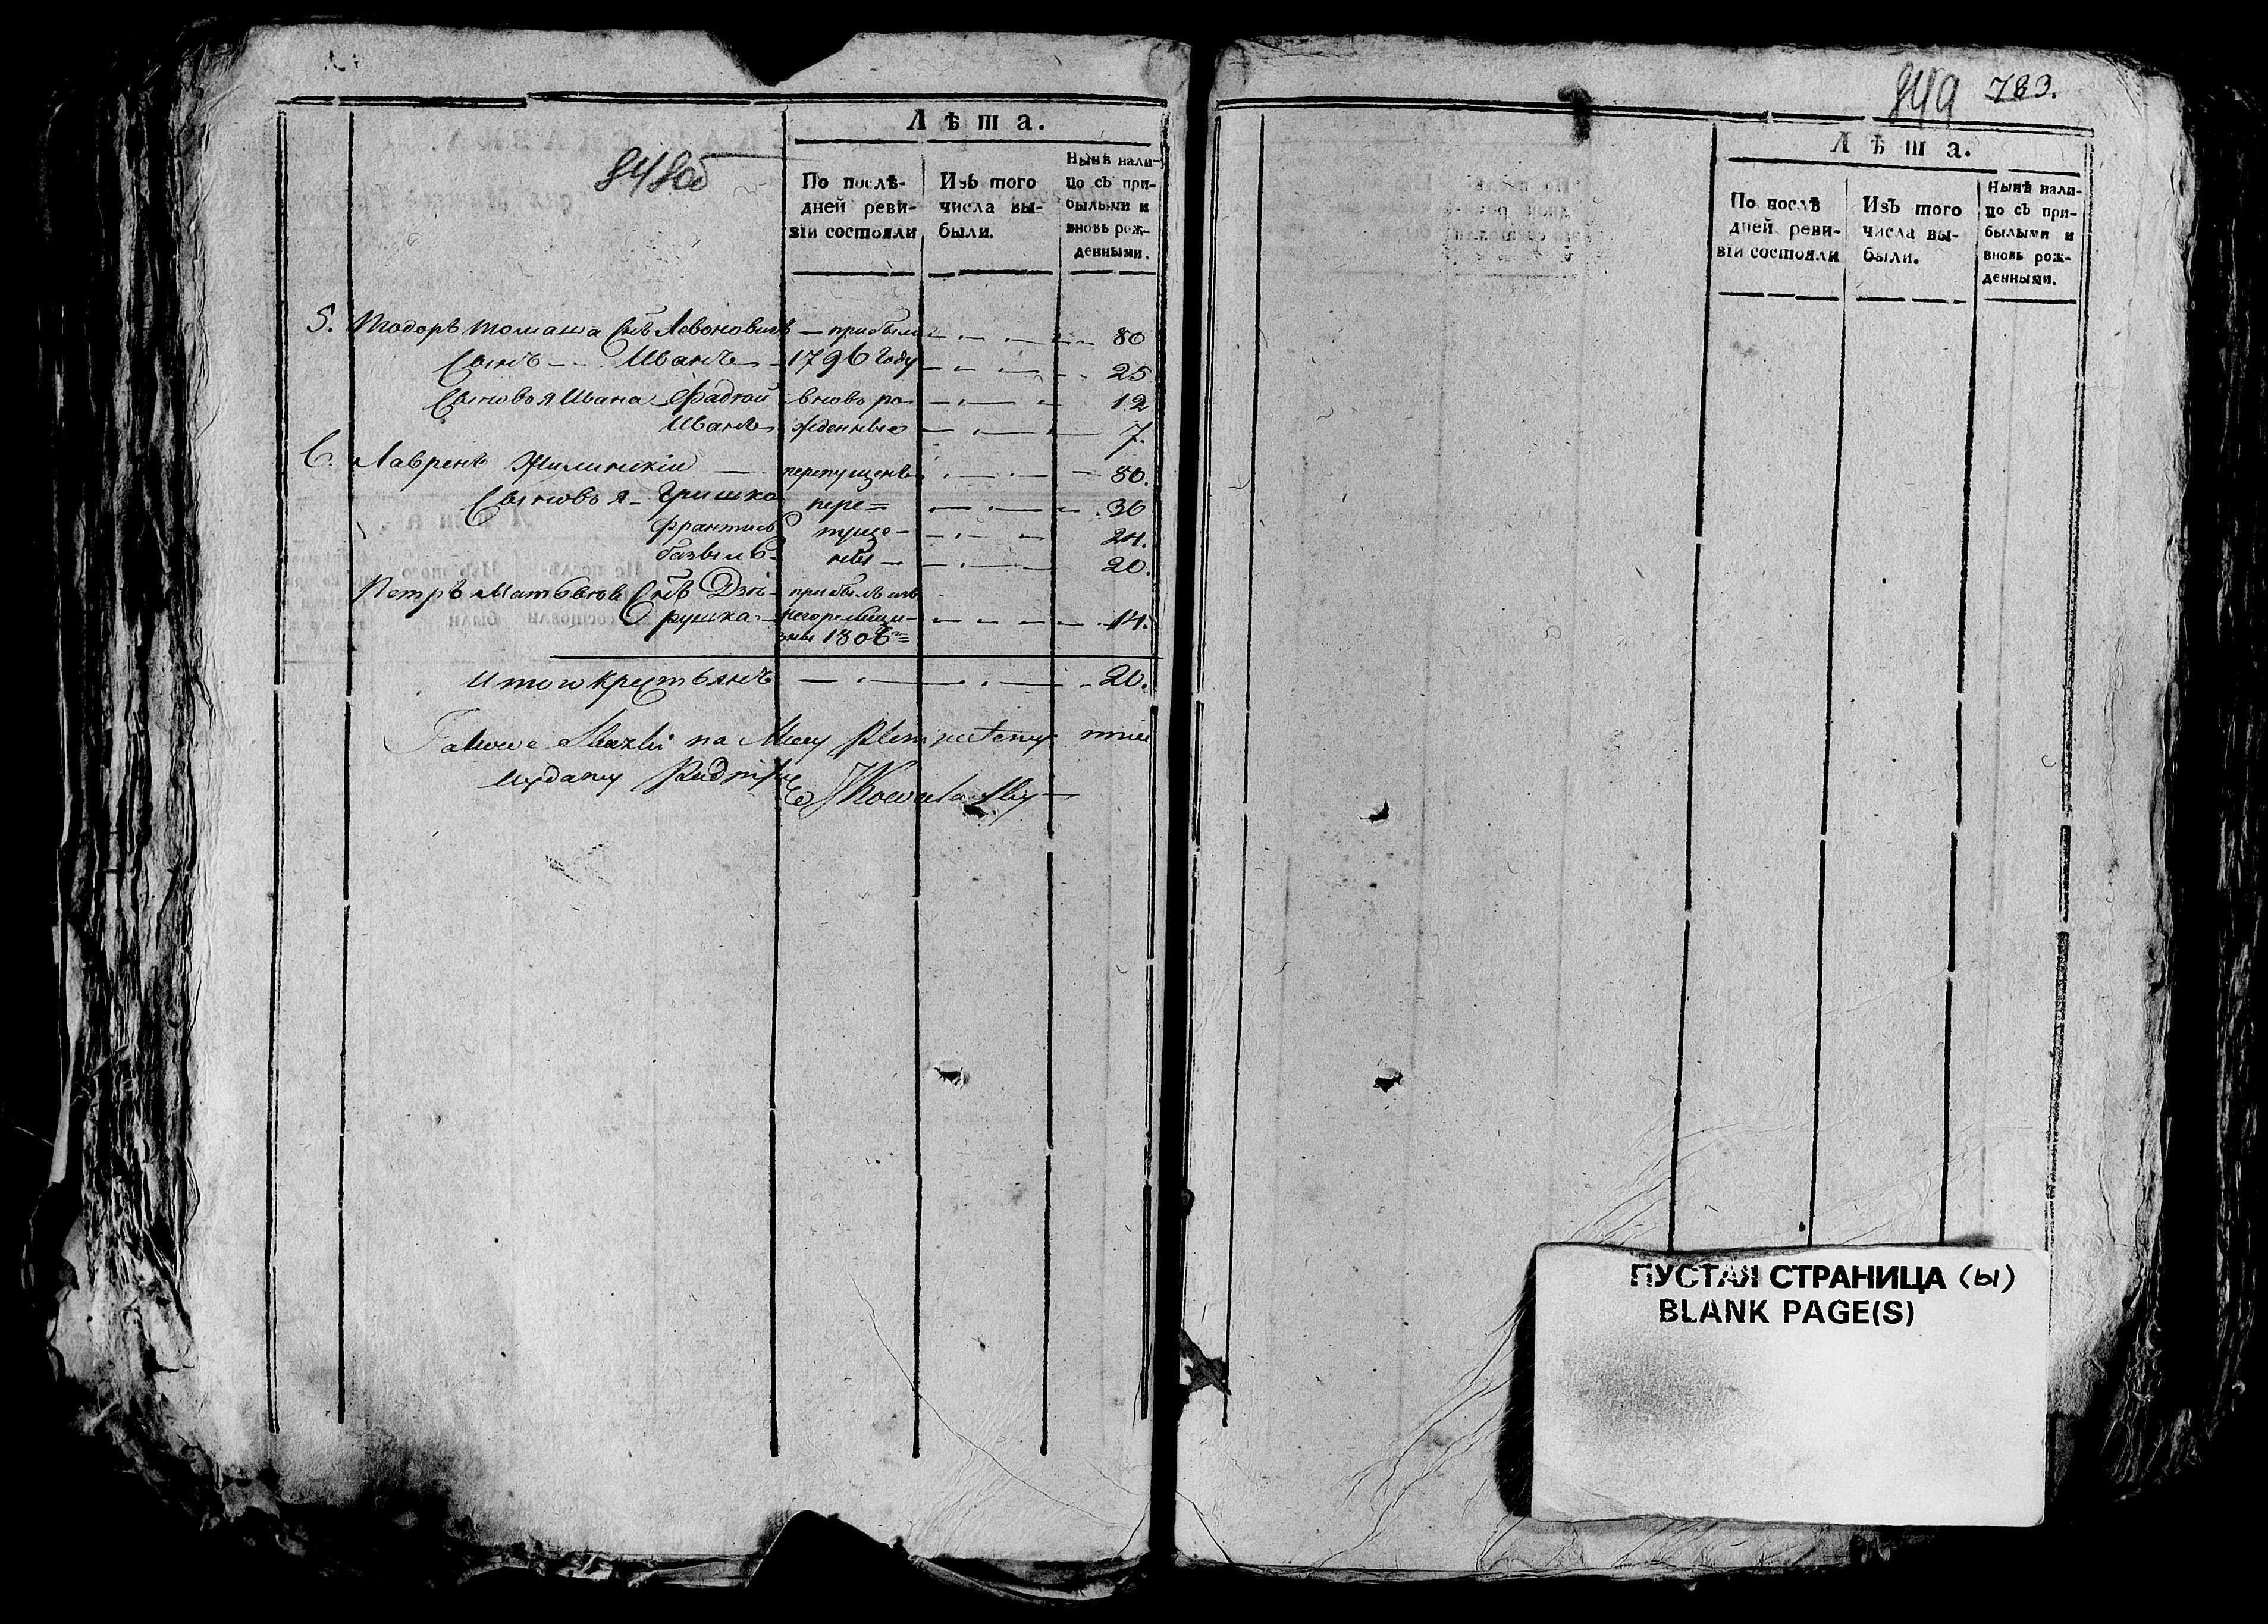 848об
Лѣта.
По послѣ-
дней реви-
зіи состояли
Изъ того
числа вы-
были.
Нынѣ нали-
цо съ при-
былыми и
вновь рож-
денными.
5. Тодоръ Томаша Сынъ Левоновичъ — прибыли 80
Сынъ — Иванъ — 1796 году 25
Сыновья Ивана Фадей вновь ро- 12
Иванъ жденные 7.
6. Лавренъ Жилинскій — перепущенъ 80.
Сыновья — Гришко пере= 36
Францишъ пуще- 24.
базыль — ны — 20.
Петръ Матвѣевъ Сынъ Дзю- прибылъ изъ
рушка — 14.
1806
Итого крестьянъ — 20.
Takowe Skazki na Mocy Plenipotencyi mnie
wydaney Podpisuię JKowalewski
849 783.
Лѣта.
По послѣ
дней реви-
зіи состояли
Изъ того
числа вы-
были.
Нынѣ нали-
цо съ при-
былыми и
вновь рож-
денными.
ПУСТАЯ СТРАНИЦА (ы)
BLANK PAGE(S)